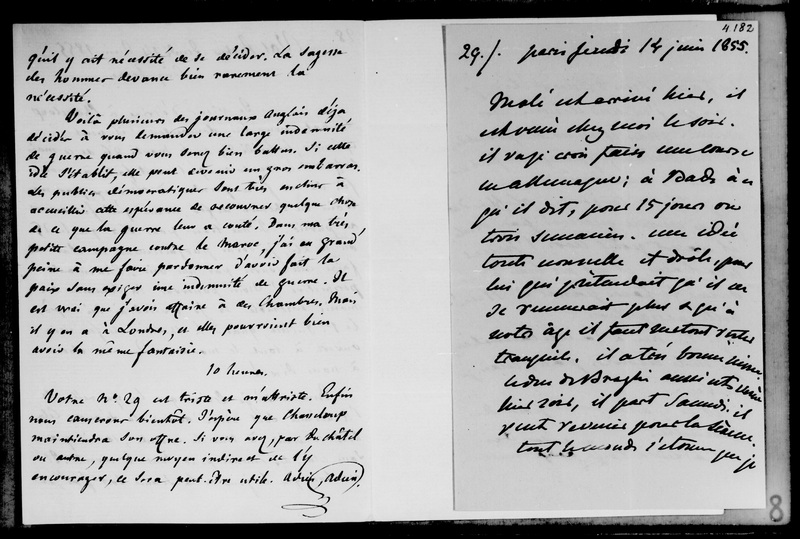 qu'il y ait nécessité de se décider. La sagesse
des hommes devance bien rarement la
nécessité.
Voilà plusieurs des journaux Anglais déjà
décidés à vous demander une large indemnité
de guerre quand vous serez bien battus. Si cette
idée s'établit, elle peut devenir un gros embarras.
Les publics démocratiques sont très enclins à
accueillir cette espérance de recouvrer quelque chose
de ce que la guerre leur a couté. Dans ma très
petite campagne contre le Maroc, j'ai eu grand
peine à me faire pardonner d'avoir fait la
paix sans exiger une indemnité de guerre. Il
est vrai que j'avois affaire à des Chambres. Mais
il y en a à Londres, et elles pourroient bien
avoir la même fantaisie.
10 heures.
Votre N° 29 est triste et m'attriste. Enfin
nous causerons bientôt. J'espère que Chasseloup
maintiendra son offre. Si vous avez, par Duchâtel
ou autre, quelque moyen indirect de l'y
encourager, ce sera peut-être utile. Adieu, Adieu.
4.182
29./. paris jeudi 14 juin 1855.
Molé est arrivé hier, il
est venu chez moi le soir.
il va je crois faire une course
en allemagne; à Bade à ce
qu'il dit, pour 15 jours ou
trois semaines. une idée
toute nouvelle et drôle, pour
lui qui prétendait qu'il ne
se remuerait plus & qu'à
notre âge il faut rester
tranquile. il a très bonne mine
le duc de Broglie aussi est venu
hier soir, il part Samedi. il
veut revenir pour la
tout le monde s'étonne que je
8